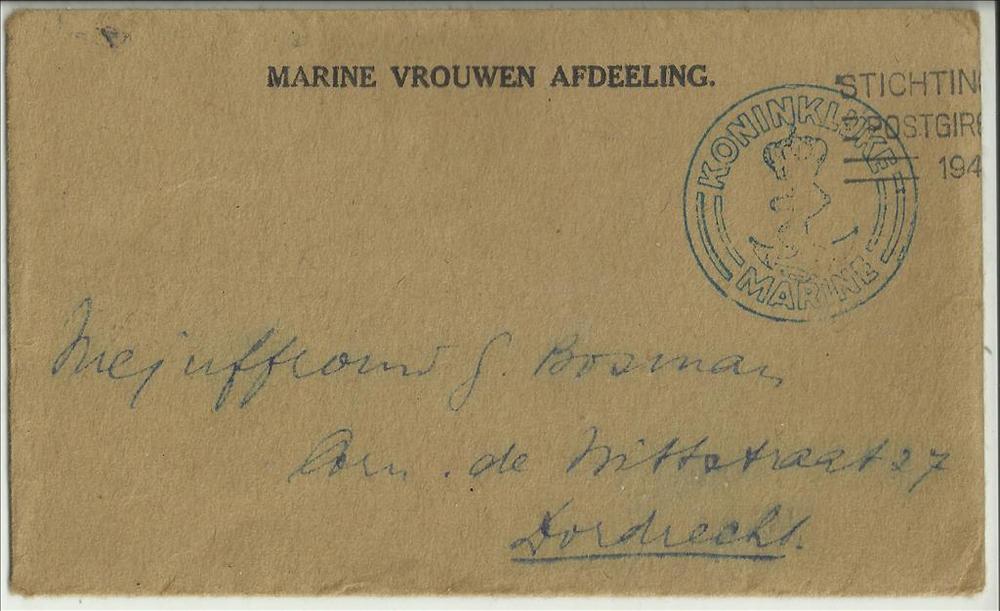 MARINE VROUWEN AFDEELING.
STICHTIN
POSTGIR
194
KONINKLIJKE
MARINE
Mejuffrouw G. Bosman
Corn. de Wittstraat 27
Dordrecht.